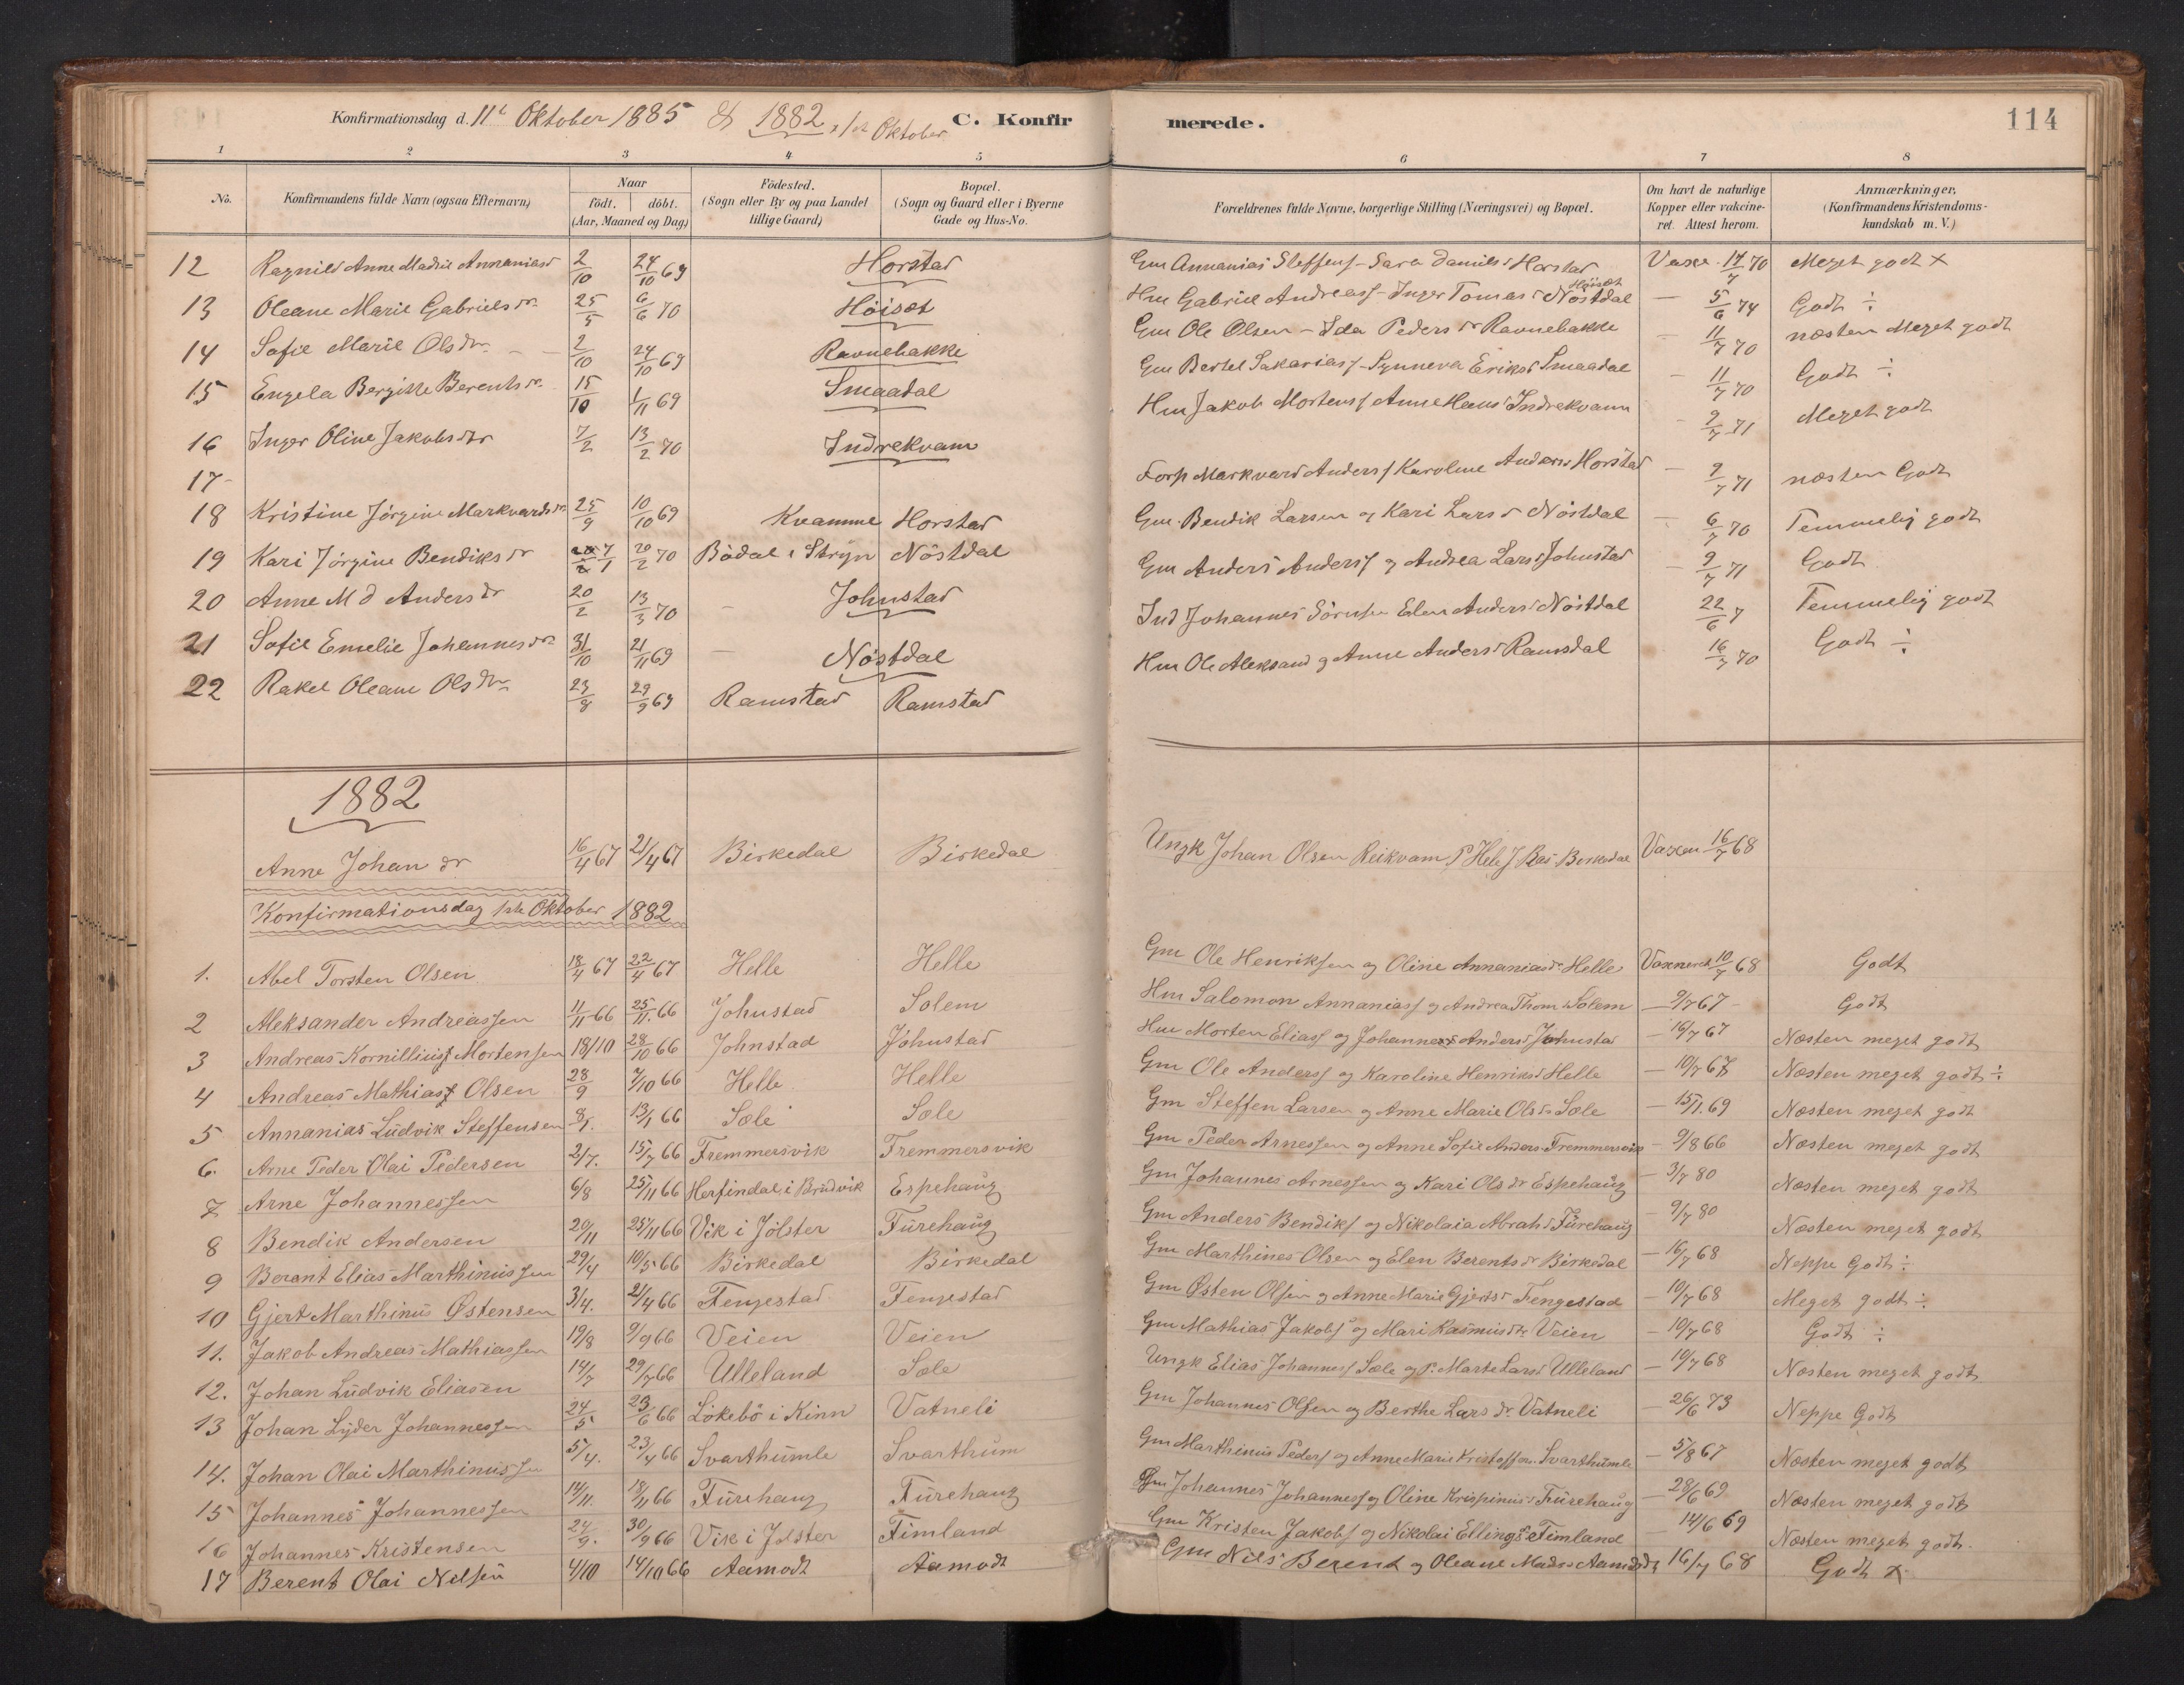 Konfirmationsdag d. 11te Oktober 1885 & 1882 1ste Oktober C. Konfirmerede. 114
1 2 3 4 5 6 7 8
No. Konfirmandens fulde Navn (ogsaa Efternavn) Naar födt. döbt. (Aar, Maaned og Dag) Födested. (Sogn eller By og paa Landet tillige Gaard) Bopæl. (Sogn og Gaard eller i Byerne Gade og Hus-No. Forældrenes fulde Navne, borgerlige Stilling (Næringsvei) og Bopæl. Om havt de naturlige Kopper eller vakcineret. Attest herom. Anmærkninger, (Konfirmandens Kristendomskundskab m. V.)
12 Ragnild Anne Madsie Annaniasd 2/10 24/10 69 Horstad Gm Annanias Steffens - Sara Daniels Horstad Vaxe 14/7 70 Meget godt x
13 Oleane Marie Gabrielsdr 25/5 6/6 70 Höiset Hm Gabriel Andreass - Inger Tomasd Nöstdal Höiset — 5/6 74 Godt ÷
14 Sofie Marie Olsdr 2/10 24/10 69 Ravnebakke Gm Ole Olsen - Ida Pedersdr Ravnebakke - 11/7 70 næsten Meget godt
15 Engela Bergitte Berentsdr 15/10 1/11 69 Smaadal Gm Bertel Sakarias - Synneva Eriksd Smaadal - 11/7 70 Godt ÷
16 Inger Oline Jakobsdtr 7/2 13/2 70 Indrekvam Hm Jakob Mortens Anne Hansd Indrekvam - 9/7 71 Meget godt
17-
18 Kristine Jörgine Markvardsdr 25/9 10/10 69 Kvamme Horstad Forp Markvard Anders Karoline Andersd Horstad — 9/7 71 næsten Godt
19 Kari Jörgine Bendiksdr 7/1 20/2 70 Bödal i Stryn Nöstdal Gm. Bendik Larsen og Kari Larsd Nöstdal — 6/7 70 Temmelig godt
20 Anne M d Andersdr 20/2 13/3 70 Johnstad Gm Anders Anders og Andrea Larsd Johnstad - 9/7 71 Godt
21 Sofie Emelie Johannesdr 31/10 21/11 69 — Nöstdal Ind Johannes Sörensen Elen Andersd Nöstdal 22/6 7 Temmelig godt
22 Rakel Oleane Olsdr 23/8 29/9 69 Ramstad Ramstad Hm Ole Aleksand og Anne Andersd Ramsdal 16/7 70 Godt ÷
1882
Anne Johandr 16/4 67 21/4 67 Birkedal Birkedal Ungk Johan Olsen Reikvam P Hele J Ras Berkedal Vaxen 16/7 68
Konfirmationsdag 1ste Oktober 1882
1. Abel Torsten Olsen 18/4 67 22/4 67 Helle Helle Gm Ole Henriksen og Oline Annaniasdr Helle Vaxneret 10/7 68 Godt
2 Aleksander Andreassen 11/11 66 25/11. 66 Johnstad Solem Hm Salomon Annanias og Andrea Thom Solem — 9/7 67 - Godt
3 Andreas Kornillius Mortensen 18/10 28/10 66 Johnstad Johnstad Hm Morten Elias og Johanne Andersd Johnstad — 16/7 67 Næsten meget godt
4 Andreas Mathias Olsen 28/9 7/10 66 Helle Helle Gm Ole Anders og Karoline Henriksd Helle — 10/7 67 Næsten meget godt ÷
5 Annanias Ludvik Steffensen 8/1. 13/1 66 Sæle Sæle Gm Steffen Larsen og Anne Marie Olsdr Sæle — 15/1. 69 Næsten meget godt
6. Arne Peder Olai Pedersen 2/7. 15/7 66 Fremmersvik Fremmersvik Gm Peder Arnessen og Anne Sofie Anders Fremmersvik — 9/8 66 Næsten meget godt
7 Arne Johannessen 6/8 25/11 66 Herfindal i Brudvik Espehaug Gm Johannes Arnessen og Kari Olsdr Espehaug — 3/7 80 Næsten meget godt
8 Bendik Andersen 20/11 25/11 66 Vik i Jölster Furehaug Gm Anders Bendiks og Nikolaia Abrahd Furehaug — 9/7 80 Næsten meget godt
9 Berant Elias Marthinussen 29/4 10/5 66 Birkedal Birkedal Gm Marthines Olsen og Elen Berentsdr Birkedal — 16/7 68 Neppe Godt ÷
10 Gjert Marthinus Østensen 3/4. 21/4 66 Fengestad Fengestad Gm Østen Olsen og Anne Marie Gjertsd Fengestad — 10/7 68 Meget godt ÷
11. Jakob Andreas Mathiassen 19/8 9/9 66 Veien Veien Gm Mathias Jakobs og Mari Rasmusdtr Veien — 10/7 68 Godt ÷
12. Johan Ludvik Eliasen 14/7 29/7 66 Ulleland Sæle Ungk Elias Johannes Sæle og P. Marte Larsd Ulleland — 10/7 68 Næsten meget godt
13 Johan Lyder Johannessen 24/5 23/6 66 Lökebö i Kinn Vatneli Gm Johannes Olsen og Berthe Larsdr Vatneli — 26/6 73 Neppe Godt
14. Johan Olai Marthinussen 5/4. 23/4 66 Svarthumle Svarthum Gm Marthinus Peders og Anne Marie Kristoff Svarthumle — 5/8 67 Næsten meget godt
15 Johannes Johannessen 14/11. 18/11 66 Furehaug Furehaug Gm Johannes Johanness og Oline Krispinusd Furehaug — 28/6 69 Næsten meget godt
16 Johannes Kristensen 24/9. 30/9 66 Vik i Jolster Timland Gm Kristen Jakobs og Nikolai Ellingsd Timland — 14/6 69 Næsten meget godt.
17 Berent Olai Nelsen 4/10 14/10 66 Aamodt Aamodt Gm Nils Berend og Oleane Madsd Aamodt 16/7 68 Godt x